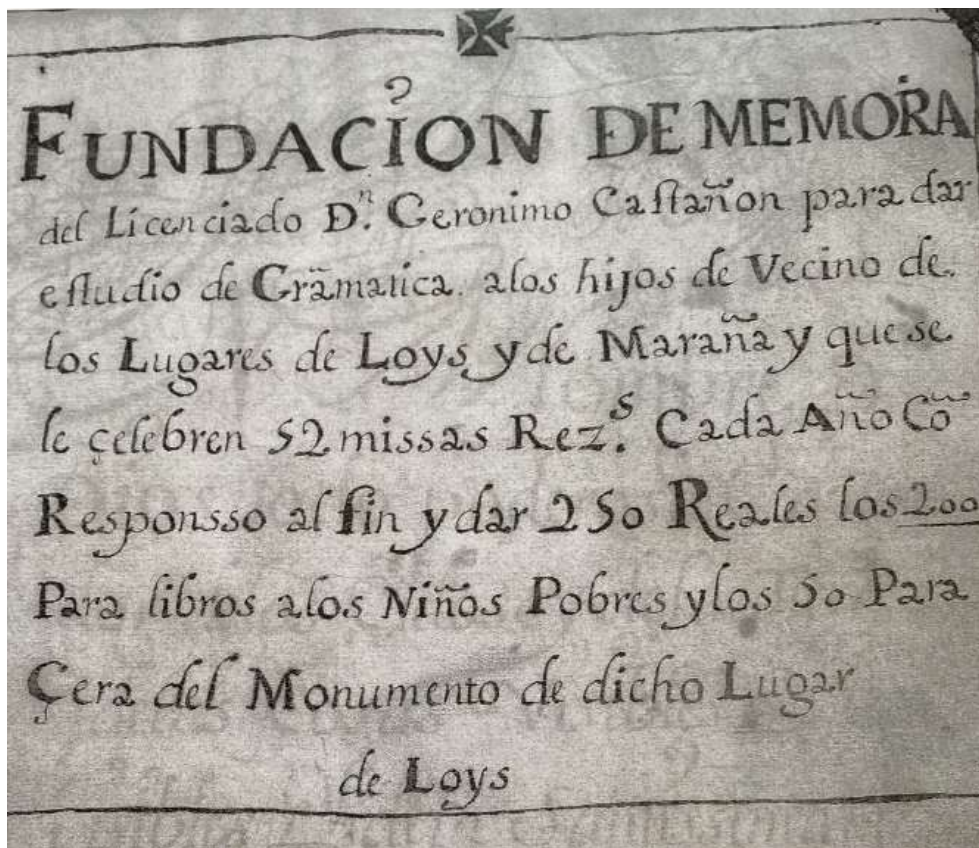 FUNDACION DE MEMORIA
del Licenciado D.n Geronimo Castañon para dar
estudio de Gramatica. a los hijos de Vecino de
los Lugares de Loys y de Maraña y que se
le çelebren 52 missas Rez.s Cada Año Cõ
Responsso al fin y dar 250 Reales los 200
Para libros a los Niños Pobres y los 50 Para
Çera del Monumento de dicho Lugar
de Loys